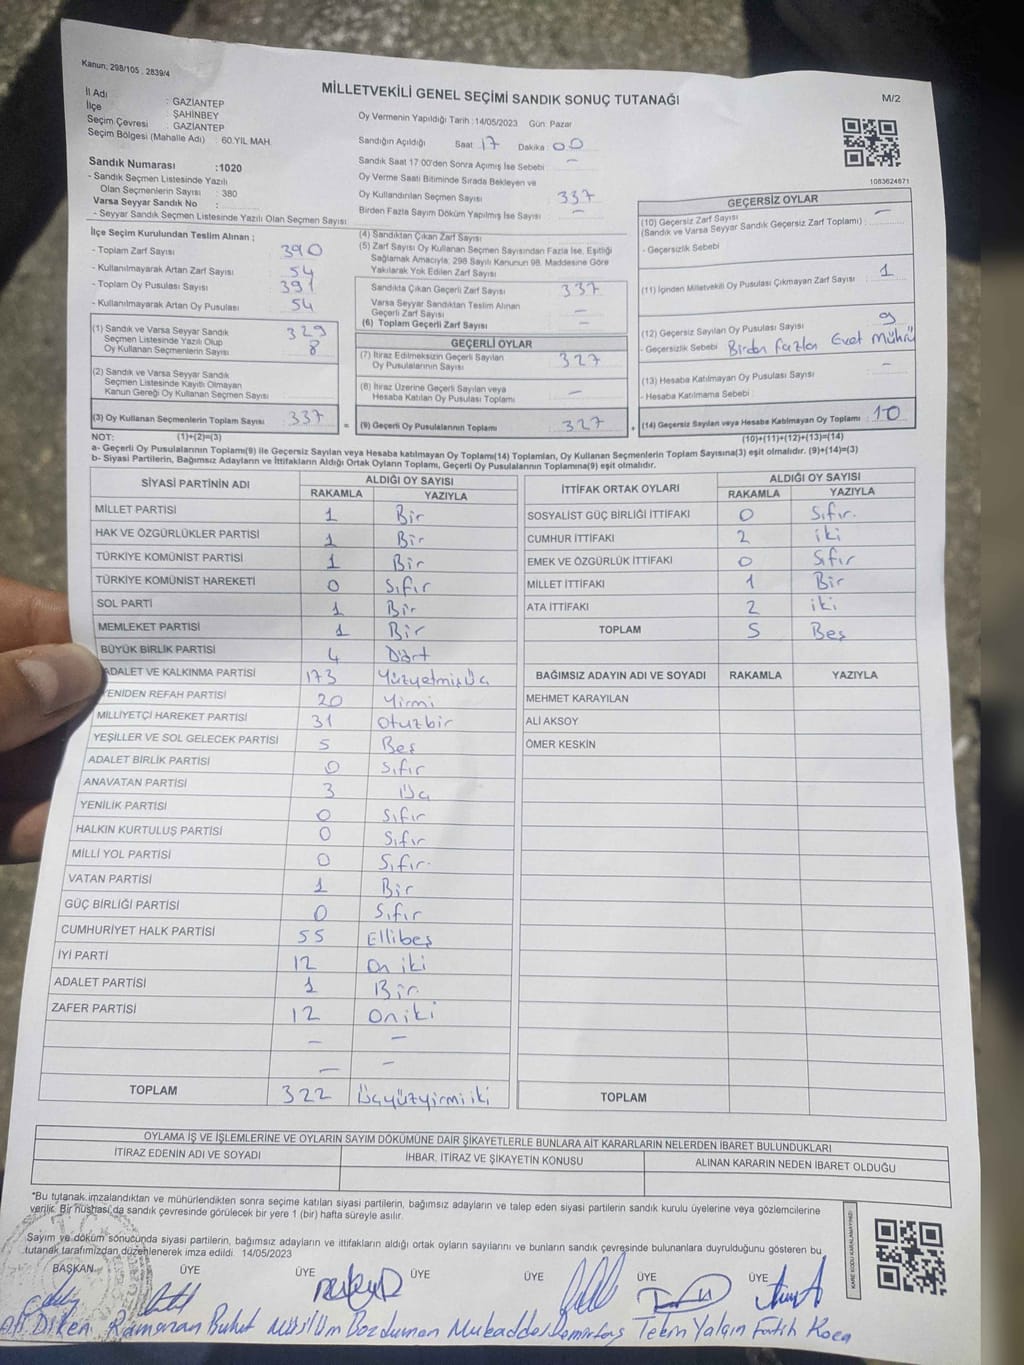 Kanun: 298/105 , 2839/4
MİLLETVEKİLİ GENEL SEÇİMİ SANDIK SONUÇ TUTANAĞI
M/2
İl Adı : GAZİANTEP
İlçe : ŞAHİNBEY
Seçim Çevresi : GAZİANTEP
Seçim Bölgesi (Mahalle Adı) : 60.YIL MAH.
Oy Vermenin Yapıldığı Tarih :14/05/2023 Gün: Pazar
Sandığın Açıldığı Saat : 17 Dakika : 00
Sandık Saat 17:00'den Sonra Açımış İse Sebebi : —
Oy Verme Saati Bitiminde Sırada Bekleyen ve
Oy Kullandırılan Seçmen Sayısı : 337
Birden Fazla Sayım Döküm Yapılmış İse Sayısı : —
1083624871
Sandık Numarası :1020
- Sandık Seçmen Listesinde Yazılı
Olan Seçmenlerin Sayısı : 380
Varsa Seyyar Sandık No :
- Seyyar Sandık Seçmen Listesinde Yazılı Olan Seçmen Sayısı:
İlçe Seçim Kurulundan Teslim Alınan ;
- Toplam Zarf Sayısı : 390
- Kullanılmayarak Artan Zarf Sayısı : 54
- Toplam Oy Pusulası Sayısı : 391
- Kullanılmayarak Artan Oy Pusulası : 54
(1) Sandık ve Varsa Seyyar Sandık 329
Seçmen Listesinde Yazılı Olup
Oy Kullanan Seçmenlerin Sayısı : 8
(2) Sandık ve Varsa Seyyar Sandık
Seçmen Listesinde Kayıtlı Olmayan
Kanun Gereği Oy Kullanan Seçmen Sayısı :
(3) Oy Kullanan Seçmenlerin Toplam Sayısı : 337
(4) Sandıktan Çıkan Zarf Sayısı :
(5) Zarf Sayısı Oy Kullanan Seçmen Sayısından Fazla İse, Eşitliği
Sağlamak Amacıyla, 298 Sayılı Kanunun 98. Maddesine Göre
Yakılarak Yok Edilen Zarf Sayısı :
Sandıkta Çıkan Geçerli Zarf Sayısı : 337
Varsa Seyyar Sandıktan Teslim Alınan
Geçerli Zarf Sayısı : —
(6) Toplam Geçerli Zarf Sayısı : —
GEÇERLİ OYLAR
(7) İtiraz Edilmeksizin Geçerli Sayılan
Oy Pusulalarının Sayısı : 327
(8) İtiraz Üzerine Geçerli Sayılan veya
Hesaba Katılan Oy Pusulası Toplamı : —
= (9) Geçerli Oy Pusulalarının Toplamı : 327
GEÇERSİZ OYLAR
(10) Geçersiz Zarf Sayısı : —
(Sandık ve Varsa Seyyar Sandık Geçersiz Zarf Toplamı) :
- Geçersizlik Sebebi :
(11) İçinden Milletvekili Oy Pusulası Çıkmayan Zarf Sayısı : 1
(12) Geçersiz Sayılan Oy Pusulası Sayısı : 9
- Geçersizlik Sebebi : Birden fazla Evet Mührü
(13) Hesaba Katılmayan Oy Pusulası Sayısı : —
- Hesaba Katılmama Sebebi :
+ (14) Geçersiz Sayılan veya Hesaba Katılmayan Oy Toplamı : 10
NOT: (1)+(2)=(3)
(10)+(11)+(12)+(13)=(14)
a- Geçerli Oy Pusulalarının Toplamı(9) ile Geçersiz Sayılan veya Hesaba katılmayan Oy Toplamı(14) Toplamları, Oy Kullanan Seçmenlerin Toplam Sayısına(3) eşit olmalıdır. (9)+(14)=(3)
b- Siyasi Partilerin, Bağımsız Adayların ve İttifakların Aldığı Ortak Oyların Toplamı, Geçerli Oy Pusulalarının Toplamına(9) eşit olmalıdır.
SİYASİ PARTİNİN ADI ALDIĞI OY SAYISI
RAKAMLA YAZIYLA
MİLLET PARTİSİ 1 Bir
HAK VE ÖZGÜRLÜKLER PARTİSİ 1 Bir
TÜRKİYE KOMÜNİST PARTİSİ 1 Bir
TÜRKİYE KOMÜNİST HAREKETİ 0 Sıfır
SOL PARTİ 1 Bir
MEMLEKET PARTİSİ 1 Bir
BÜYÜK BİRLİK PARTİSİ 4 Dört
ADALET VE KALKINMA PARTİSİ 173 Yüzyetmişüç
YENİDEN REFAH PARTİSİ 20 Yirmi
MİLLİYETÇİ HAREKET PARTİSİ 31 Otuzbir
YEŞİLLER VE SOL GELECEK PARTİSİ 5 Beş
ADALET BİRLİK PARTİSİ 0 Sıfır
ANAVATAN PARTİSİ 3 Üç
YENİLİK PARTİSİ 0 Sıfır
HALKIN KURTULUŞ PARTİSİ 0 Sıfır
MİLLİ YOL PARTİSİ 0 Sıfır
VATAN PARTİSİ 1 Bir
GÜÇ BİRLİĞİ PARTİSİ 0 Sıfır
CUMHURİYET HALK PARTİSİ 55 Ellibeş
İYİ PARTİ 12 On iki
ADALET PARTİSİ 1 Bir
ZAFER PARTİSİ 12 Oniki
— —
— —
TOPLAM 322 Üçyüzyirmi iki
İTTİFAK ORTAK OYLARI ALDIĞI OY SAYISI
RAKAMLA YAZIYLA
SOSYALİST GÜÇ BİRLİĞİ İTTİFAKI 0 Sıfır.
CUMHUR İTTİFAKI 2 iki
EMEK VE ÖZGÜRLÜK İTTİFAKI 0 Sıfır
MİLLET İTTİFAKI 1 Bir
ATA İTTİFAKI 2 iki
TOPLAM 5 Beş
BAĞIMSIZ ADAYIN ADI VE SOYADI RAKAMLA YAZIYLA
MEHMET KARAYILAN
ALİ AKSOY
ÖMER KESKİN
TOPLAM
OYLAMA İŞ VE İŞLEMLERİNE VE OYLARIN SAYIM DÖKÜMÜNE DAİR ŞİKAYETLERLE BUNLARA AİT KARARLARIN NELERDEN İBARET BULUNDUKLARI
İTİRAZ EDENİN ADI VE SOYADI İHBAR, İTİRAZ VE ŞİKAYETİN KONUSU ALINAN KARARIN NEDEN İBARET OLDUĞU
*Bu tutanak imzalandıktan ve mühürlendikten sonra seçime katılan siyasi partilerin, bağımsız adayların ve talep eden siyasi partilerin sandık kurulu üyelerine veya gözlemcilerine
verilir. Bir nüshası da sandık çevresinde görülecek bir yere 1 (bir) hafta süreyle asılır.
Sayım ve döküm sonucunda siyasi partilerin, bağımsız adayların ve ittifakların aldığı ortak oyların sayılarını ve bunların sandık çevresinde bulunanlara duyrulduğunu gösteren bu
tutanak tarafımızdan düzenlenerek imza edildi. 14/05/2023
KARE KODU KARALAMAYINIZ!
BAŞKAN ÜYE ÜYE ÜYE ÜYE ÜYE ÜYE
Ali Diken Ramazan Bulut Müslüm Bozduman Mukaddes Demirtaş Tekin Yalçın Fatih Koca